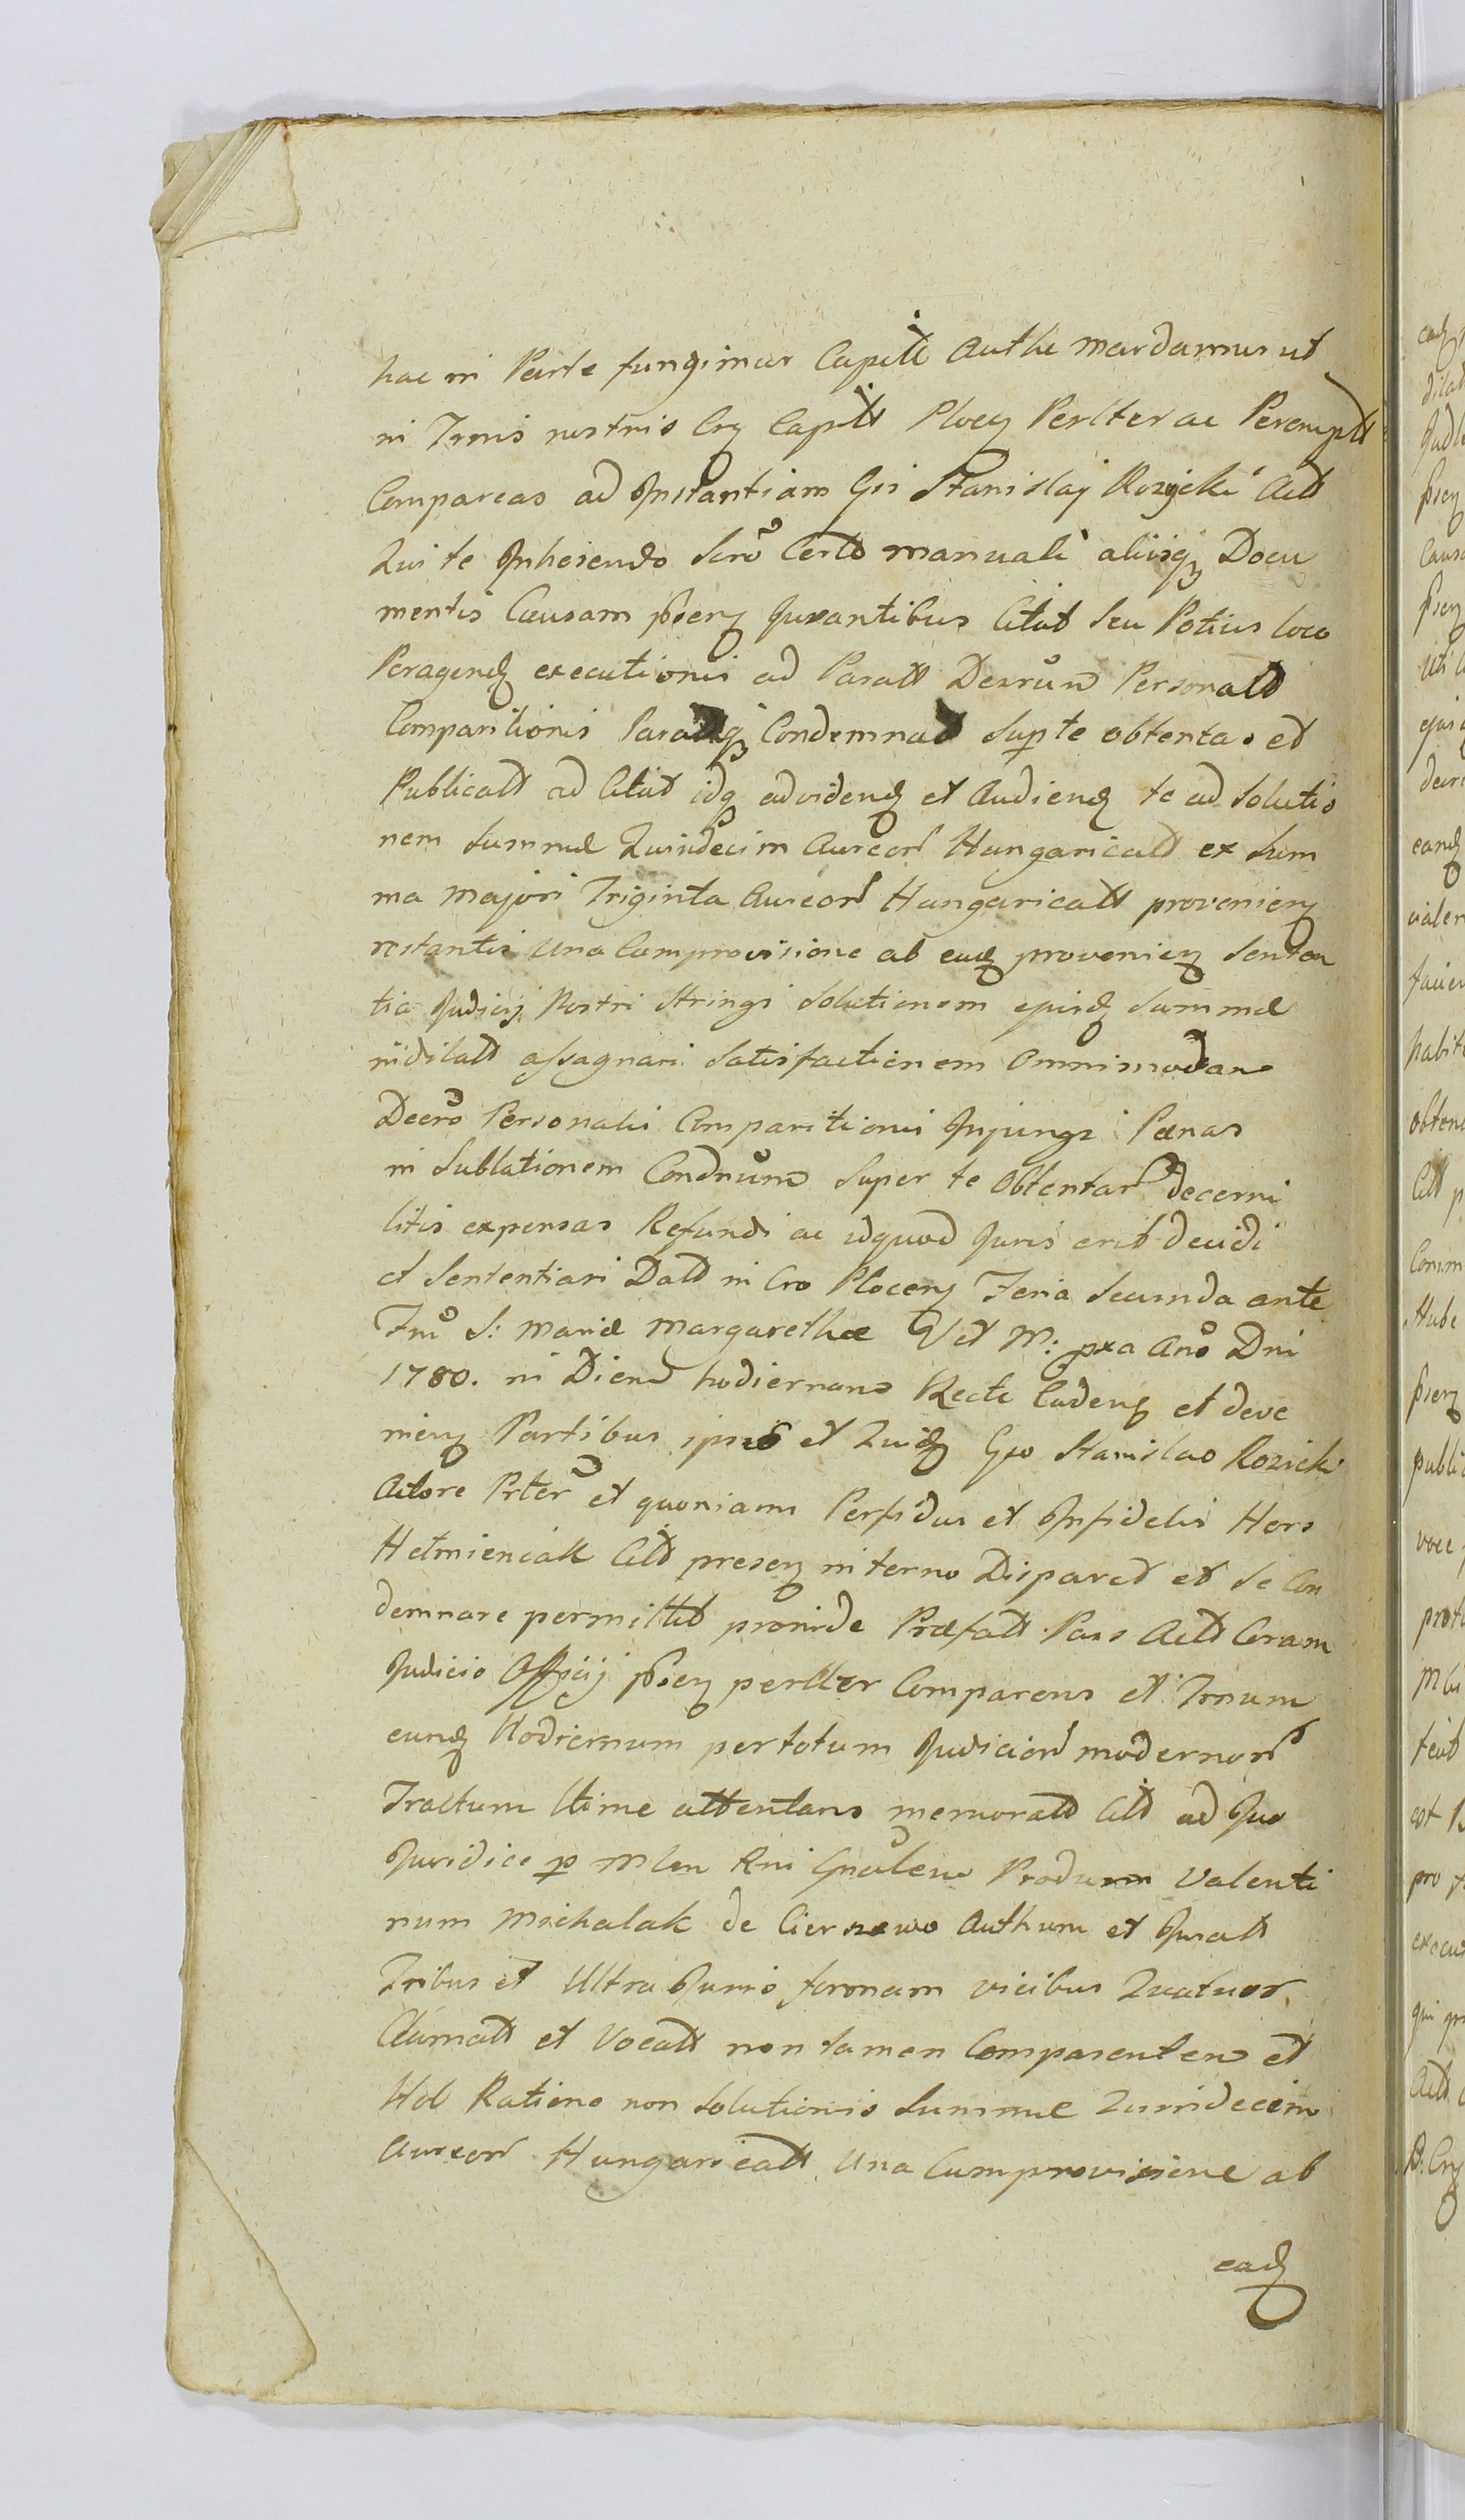 hac in Parte fungimur Capitt Authe mandamus ut
in Trnis nostris Crj Capitt Plocj Perlter ac Peremptt
Compareas ad Instantiam Gsi Stanislaj Rozycki Actt
Qui te Inherendo Scro Certo manuali aliisq Docu
mentis Causam psenj Juvantibus Citat Seu Potius loco
Peragend executionis ad Paratt Decrum Personatt
Comparitionis Condemnat Super te obtentas et
Publicatt ad Citat idq advidend et Audiend te ad Solutio
nem Summæ Quindecim Aureor Hungaricatt ex Sum
ma majori Triginta Aureor Hungaricatt provenienj
restantis Una Cumprovisione ab ead provenienj Senten
tia Judicij Nostri Stringi Solutionem ejusd Summæ
indilatt assagnari Satisfactionem Omnimodam
Decro Personalis Comparitionis Injungi Pænas
in Sublationem Condnum Super te Obtentar decerni
litis expensas Refundi ac idquod Juris erit decidi
et Sententiari Datt in Cro Plocenj Feria Secunda ante
Fm S: Mariæ Margarethæ V et M: pxa Ano Dni
1780. in Diem hodiernam Recte Cadenj et deve
nienj Partibus ipsis et Quid Gso Stanislao Rozicki
Actore Prter et quoniam Perfidus et Infidelis Hers
Hetmieniak Citt presenj in terno Disparet et se Con
demnare permittit proinde Præfatt Pars Actt Coram
Judicio Officij psenj perlter Comparens et Trnum
eund Hodiernum pertotum Judicior modernor
Tractum lttime attentans memoratt Citt ad Jus
Juridice p Mlem Rni Gnalem Produm Valenti
num Michalak de Cierszewo Authum et Juratt
Tribus et Ultra Juris formam vicibus Quatuor
Clamatt et Vocatt non tamen Comparentem et
Hob Ratione non Solutionis Summæ Quindecim
Aureor Hungaricatt Una Cumprovisione ab
ead